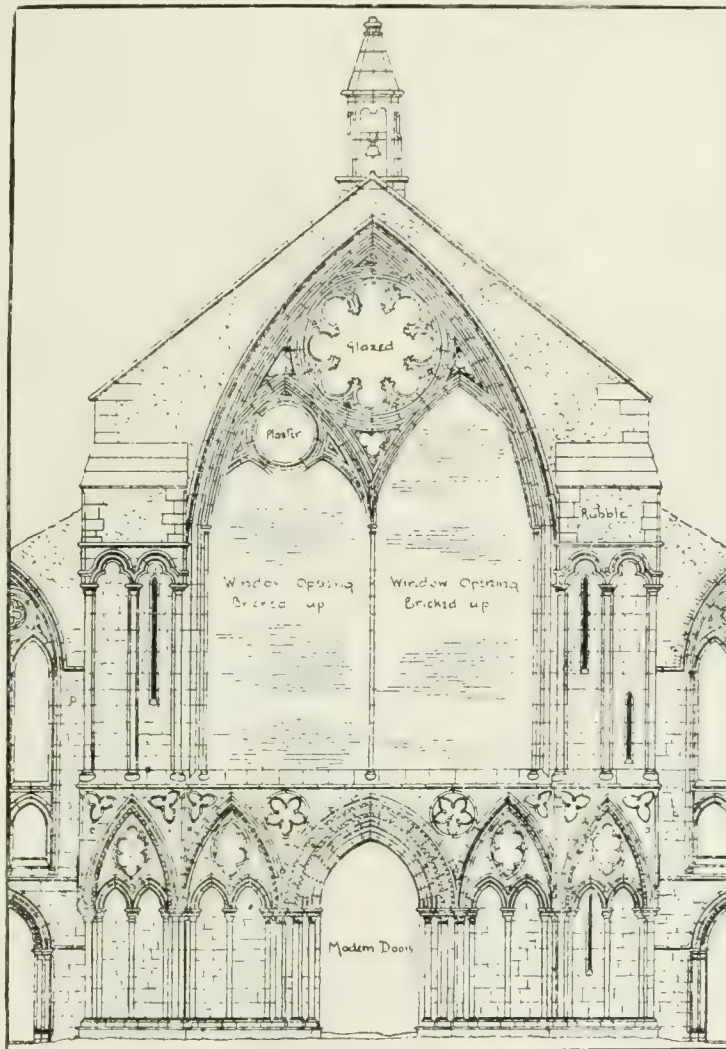 Glazed
Plaster
Rubble
Window Opening
Bricked up
Window Opening
Bricked up
Modern Doors